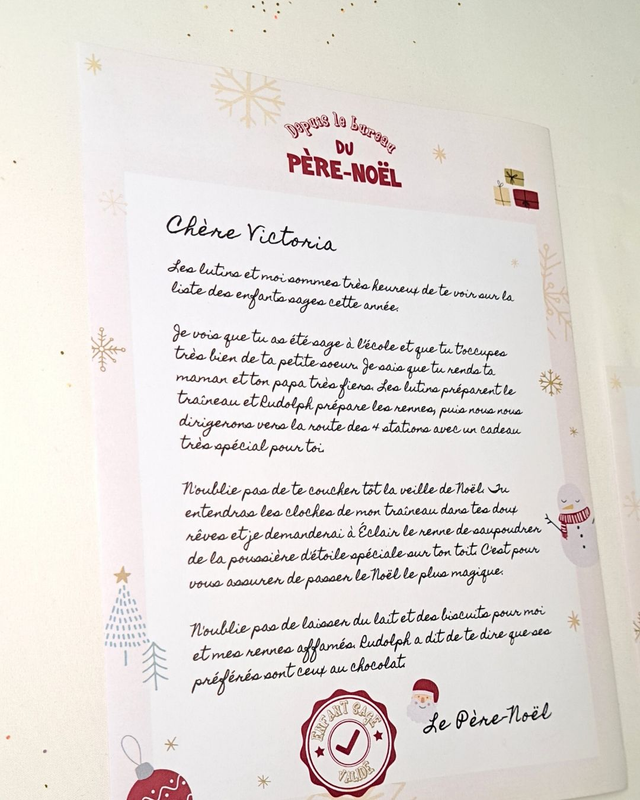 Depuis le bureau
DU
PÈRE-NOËL
Chère Victoria
Les lutins et moi sommes très heureux de te voir sur la
liste des enfants sages cette année.
Je vois que tu as été sage à l'école et que tu t'occupes
très bien de ta petite soeur. Je sais que tu rends ta
maman et ton papa très fiers. Les lutins préparent le
traîneau et Rudolph prépare les rennes, puis nous nous
dirigerons vers la route des 4 stations avec un cadeau
très spécial pour toi.
N'oublie pas de te coucher tôt la veille de Noël. Tu
entendras les cloches de mon traineau dans tes doux
rêves et je demanderai à Éclair le renne de saupoudrer
de la poussière d'étoile spéciale sur ton toit. C'est pour
vous assurer de passer le Noël le plus magique.
N'oublie pas de laisser du lait et des biscuits pour moi
et mes rennes affamés. Rudolph a dit de te dire que ses
préférés sont ceux au chocolat.
Le Père-Noël
ENFANT SAGE
VALIDÉ